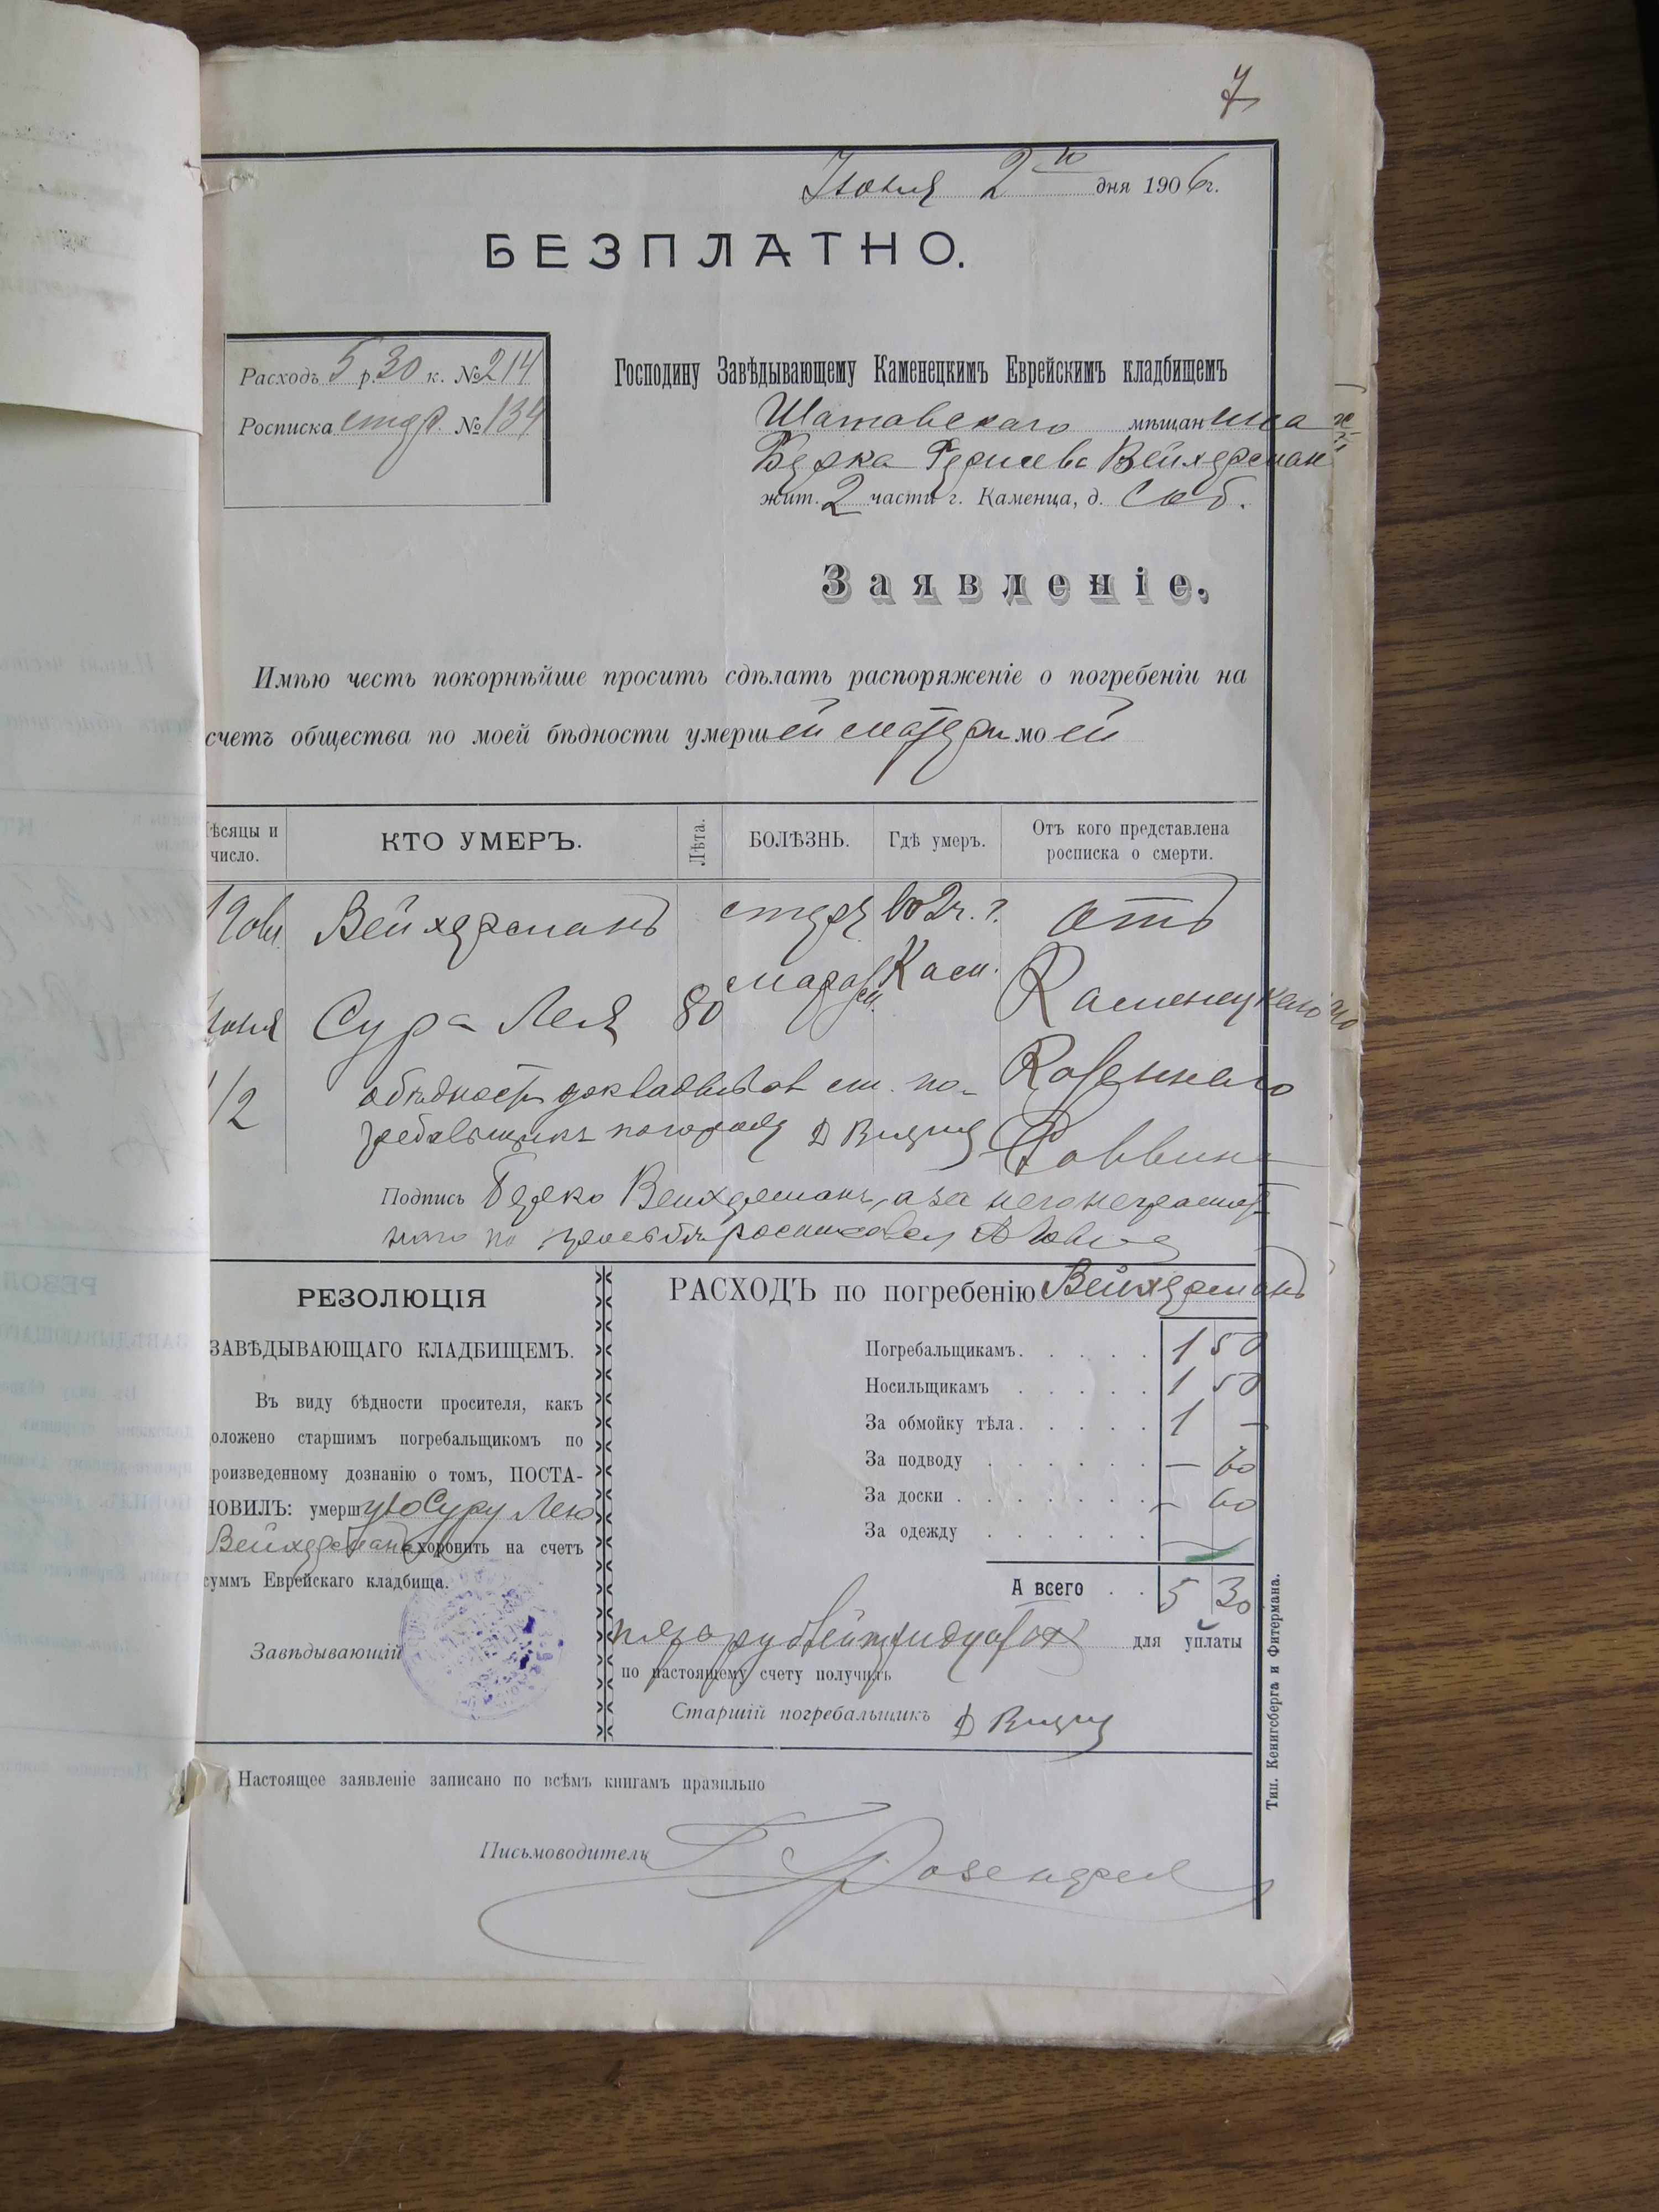 7
Июня 2го дня 1906 г.
БЕЗПЛАТНО.
Расходъ 5 р. 30 к. № 214
Росписка № 134
Господину Завѣдывающему Каменецкимъ Еврейскимъ кладбищемъ
Шатавскаго мѣщанина
Берка Вейхерман
жит. 2 части г. Каменца, д. Соб.
Заявленіе.
Имѣю честь покорнѣйше просить сдѣлать распоряженіе о погребеніи на
счетъ общества по моей бѣдности умершей матери моей
ѣсяцы и число. КТО УМЕРЪ. Лѣта. БОЛѢЗНЬ. Гдѣ умеръ. Отъ кого представлена росписка о смерти.
Вейхерманъ во 2 ч. г. отъ
Июня Сура Лея 80 Кам. Каменецкаго
1/2 Казеннаго
о бѣдности ст. по-
гребальщикъ Раввина
Подпись Берко Вейхерманъ, а за него неграмот
ного по просьбѣ росписался
РЕЗОЛЮЦІЯ
ЗАВѢДЫВАЮЩАГО КЛАДБИЩЕМЪ.
Въ виду бѣдности просителя, какъ
оложено старшимъ погребальщикомъ по
роизведенному дознанію о томъ, ПОСТА-
НОВИЛЪ: умершую Суру Лею
Вейхерманъ схоронить на счетъ
суммъ Еврейскаго кладбища.
Завѣдывающій
РАСХОДЪ по погребенію Вейхерманъ
Погребальщикамъ. 1 50
Носильщикамъ 1 50
За обмойку тѣла. 1 —
За подводу — 60
За доски — 60
За одежду —
А всего 5 30
для уплаты
по настоящему счету получилъ
Старшій погребальщикъ
Настоящее заявленіе записано по всѣмъ книгамъ правильно
Письмоводитель
Тип. Кенигсберга и Фитермана.